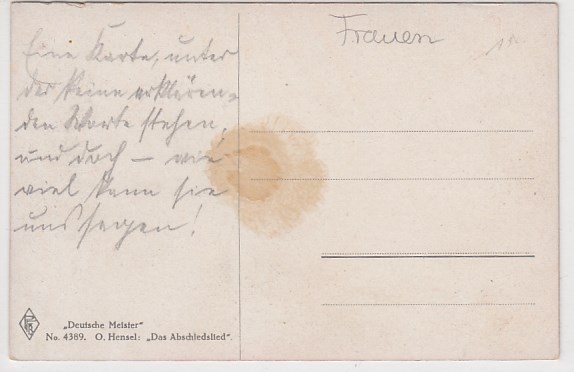 Eine Karte, unter
der keine erklären-
den Worte stehen,
und doch – wie
viel kann sie
uns sagen!
Frauen
15
„Deutsche Meister"
No. 4389. O. Hensel: „Das Abschiedslied".